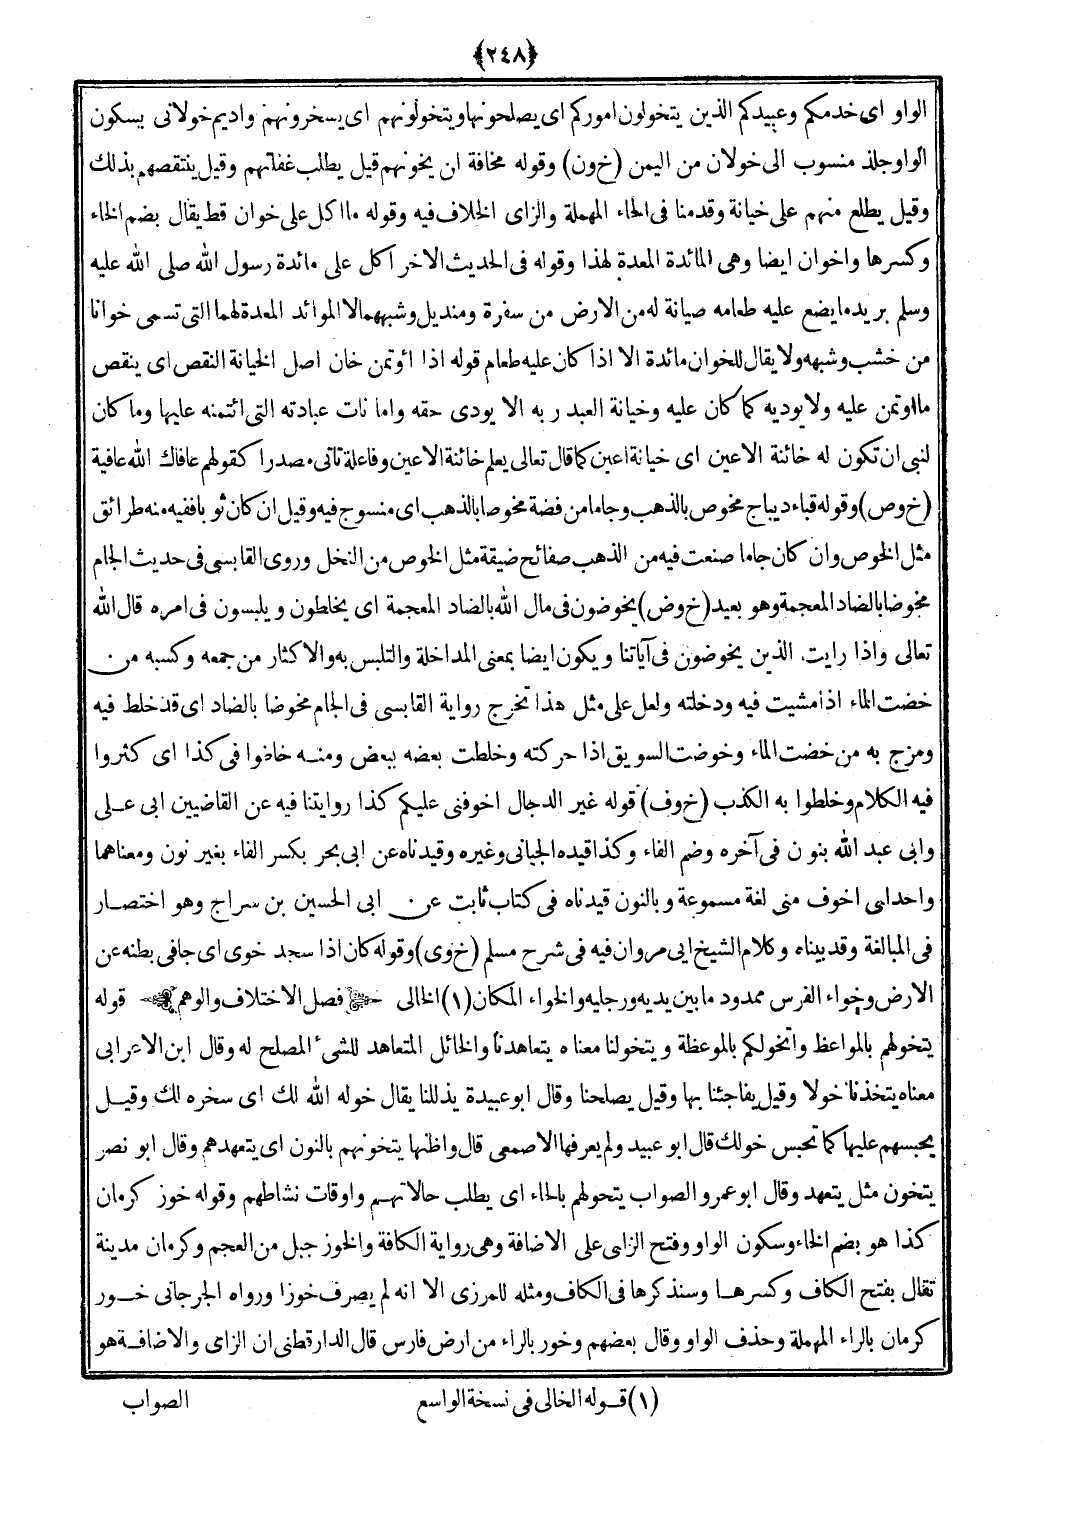 ﴿٢٤٨﴾
الواو اى خدمكم وعبيدكم الذين يتخولون اموركم اى يصلحونها ويتخولونهم اى يسخرونهم واديم خولانى يسكون
الواو جلد منسوب الى خولان من اليمن (خ ون) وقوله مخافة ان يخونهم قيل يطلب غفلتهم وقيل ينتقصهم بذلك
وقيل يطلع منهم على خيانة وقدمنا فى الحاء المهملة والزاى الخلاف فيه وقوله ما اكل على خوان قط يقال بضم الخاء
وكسرها واخوان ايضا وهى المائدة المعدة لهذا وقوله فى الحديث الاخر اكل على مائدة رسول الله صلى الله عليه
وسلم يريد ما يضع عليه طعامه صيانة له من الارض من سفرة ومنديل وشبههما لا الموائد المعدة لهما التى تسمى خوانا
من خشب وشبهه ولا يقال للخوان مائدة الا اذا كان عليه طعام قوله اذا ائوتمن خان اصل الخيانة النقص اى ينقص
ما اوتمن عليه ولا يوديه كما كان عليه وخيانة العبد ربه الا يودى حقه واما نات عبادته التى ائتمنه عليها وما كان
لنبى ان تكون له خائنة الاعين اى خيانة اعين كما قال تعالى يعلم خائنة الاعين وفاعلة تاتى مصدرا كقولهم عافاك الله عافية
(خ وص) وقوله قباء ديباج مخوص بالذهب وجاما من فضة مخوصا بالذهب اى منسوج فيه وقيل ان كان ثوبا ففيه منه طرائق
مثل الخوص وان كان جاما صنعت فيه من الذهب صفائح ضيقة مثل الخوص من النخل وروى القابسى فى حديث الجام
مخوضا بالضاد المعجمة وهو بعيد (خ وض) يخوضون فى مال الله بالضاد المعجمة اى يخلطون ويلبسون فى امره قال الله
تعالى واذا رايت الذين يخوضون فى آياتنا ويكون ايضا بمعنى المداخلة والتلبس به والاكثار من جمعه وكسبه من
خضت الماء اذا مشيت فيه ودخلته ولعل على مثل هذا تخرج رواية القابسى فى الجام مخوضا بالضاد اى قد خلط فيه
ومزج به من خضت الماء وخوضت السويق اذا حركته وخلطت بعضه ببعض ومنه خاضوا فى كذا اى كثروا
فيه الكلام وخلطوا به الكذب (خ وف) قوله غير الدجال اخوفنى عليكم كذا روايتنا فيه عن القاضيين ابى على
وابى عبد الله بنون فى آخره وضم الفاء وكذا قيده الجيانى وغيره وقيدناه عن ابى بحر بكسر الفاء بغير نون ومعناهما
واحد اى اخوف منى لغة مسموعة وبالنون قيدناه فى كتاب ثابت عن ابى الحسين بن سراج وهو اختصار
فى المبالغة وقد بيناه وكلام الشيخ ابى مروان فيه فى شرح مسلم (خ وى) وقوله كان اذا سجد خوى اى جافى بطنه عن
الارض وخواء الفرس ممدود ما بين يديه ورجليه والخواء المكان (١) الخالى فصل الاختلاف والوهم قوله
يتخولهم بالمواعظ واتخولكم بالموعظة ويتخولنا معناه يتعاهدنا والخائل المتعاهد للشىء المصلح له وقال ابن الاعرابى
معناه يتخذنا خولا وقيل يفاجئنا بها وقيل يصلحنا وقال ابو عبيدة يذللنا يقال خوله الله لك اى سخره لك وقيل
يحبسهم عليها كما تحبس خولك قال ابو عبيد ولم يعرفها الاصمعى قال واظنها يتخونهم بالنون اى يتعهدهم وقال ابو نصر
يتخون مثل يتعهد وقال ابو عمرو الصواب يتحولهم بالحاء اى يطلب حالاتهم واوقات نشاطهم وقوله خوز كرمان
كذا هو بضم الخاء وسكون الواو وفتح الزاى على الاضافة وهى رواية الكافة والخوز جبل من العجم وكرمان مدينة
تقال بفتح الكاف وكسرها وسنذكرها فى الكاف ومثله للمرزى الا انه لم يصرف خوزا ورواه الجرجانى خور
كرمان بالراء المهملة وحذف الواو وقال بعضهم وخور بالراء من ارض فارس قال الدارقطنى ان الزاى والاضافة هو
(١) قوله الخالى فى نسخة الواسع
الصواب